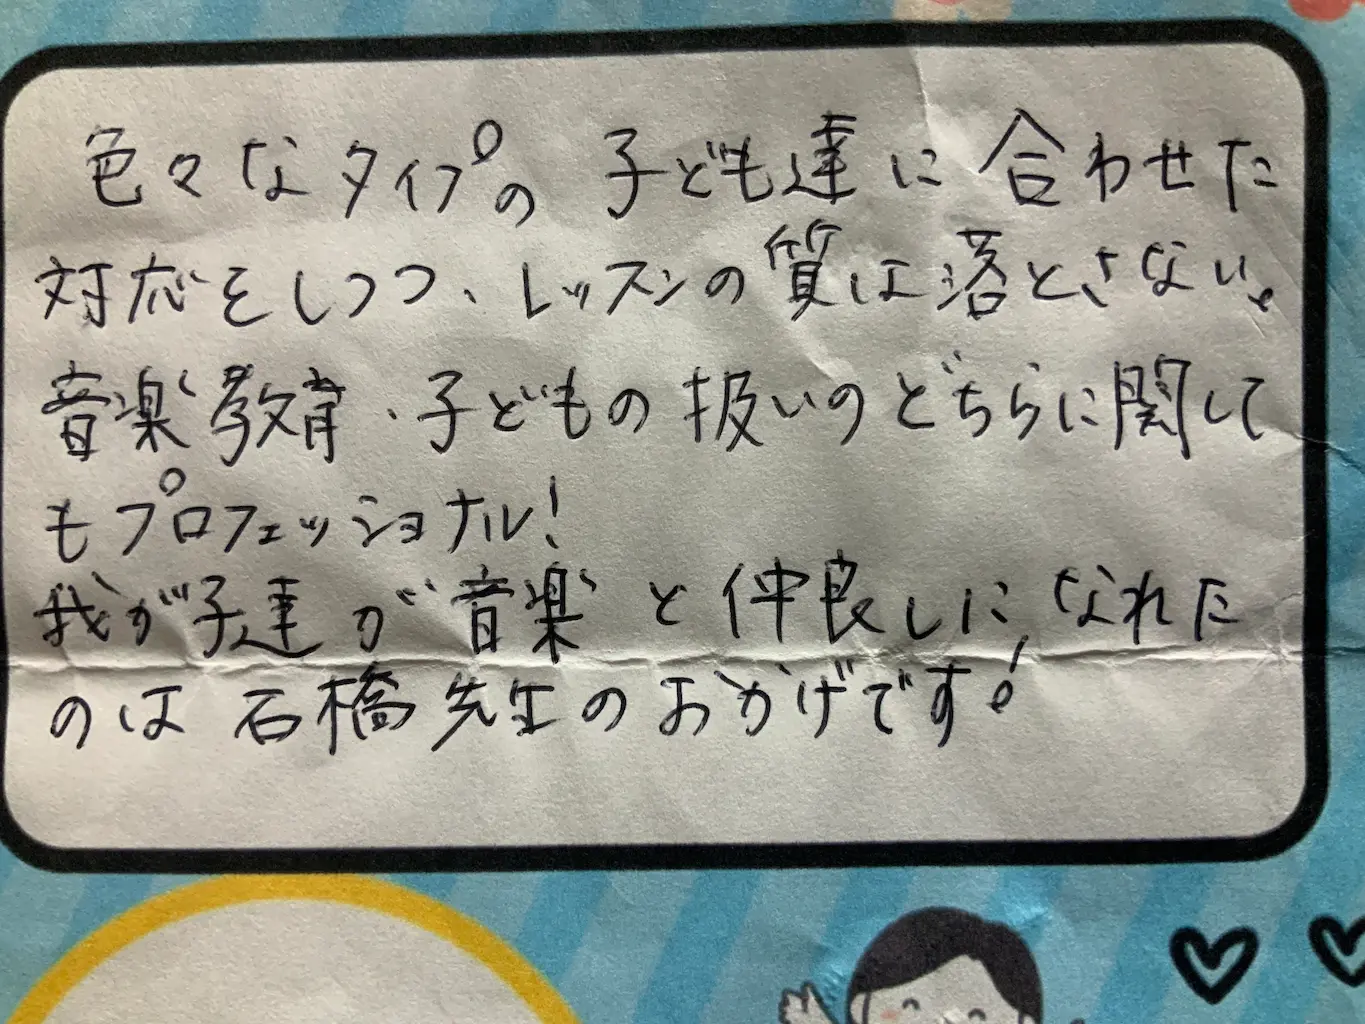 色々なタイプの子ども達に合わせた
対応をしつつ、レッスンの質は落とさない。
音楽教育・子どもの扱いのどちらに関して
もプロフェッショナル!
我が子達が音楽と仲良しになれた
のは石橋先生のおかげです!